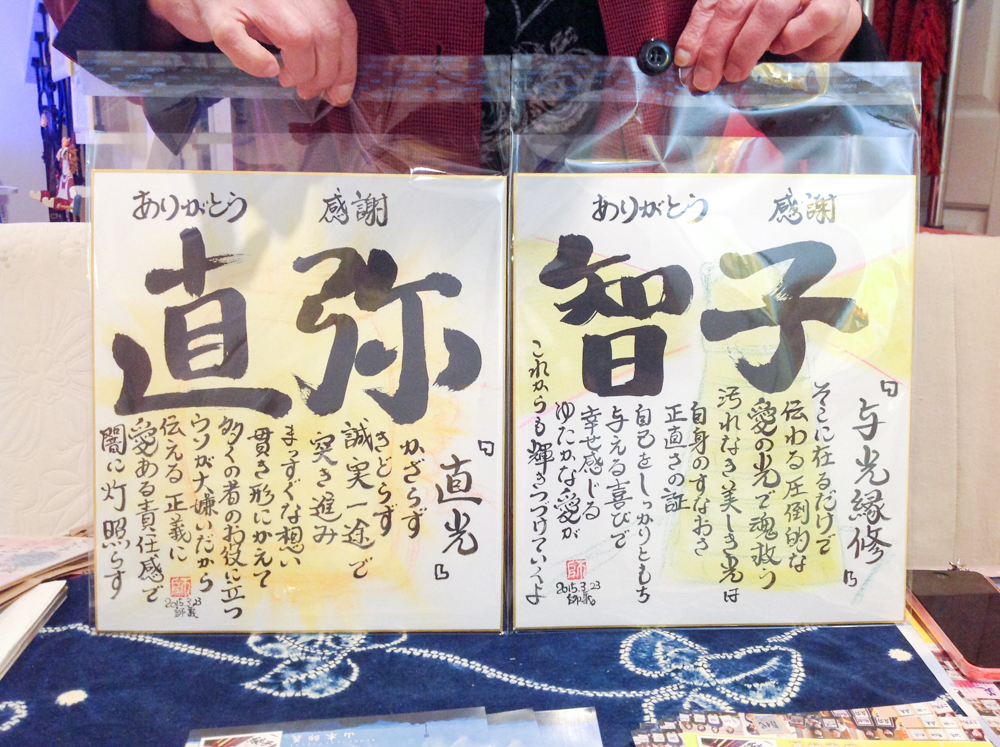 ありがとう 感謝
直弥
「直光」
かざらず
きどらず
誠実一途で
突き進み
まっすぐな想い
貫き形にかえて
多くの者のお役に立つ
ウソが大嫌いだから
伝える 正義に
愛ある責任感で
闇に灯照らす
師
2015.3.23
ありがとう 感謝
智子
「与光縁修」
そこに在るだけで
伝わる圧倒的な
愛の光で魂救う
汚れなき美しき光は
自身のすなおさ
正直さの証
自己をしっかりともち
与える喜びで
幸せ感じる
ゆたかな愛が
これからも輝きつづけていくよ
師
2015.3.23